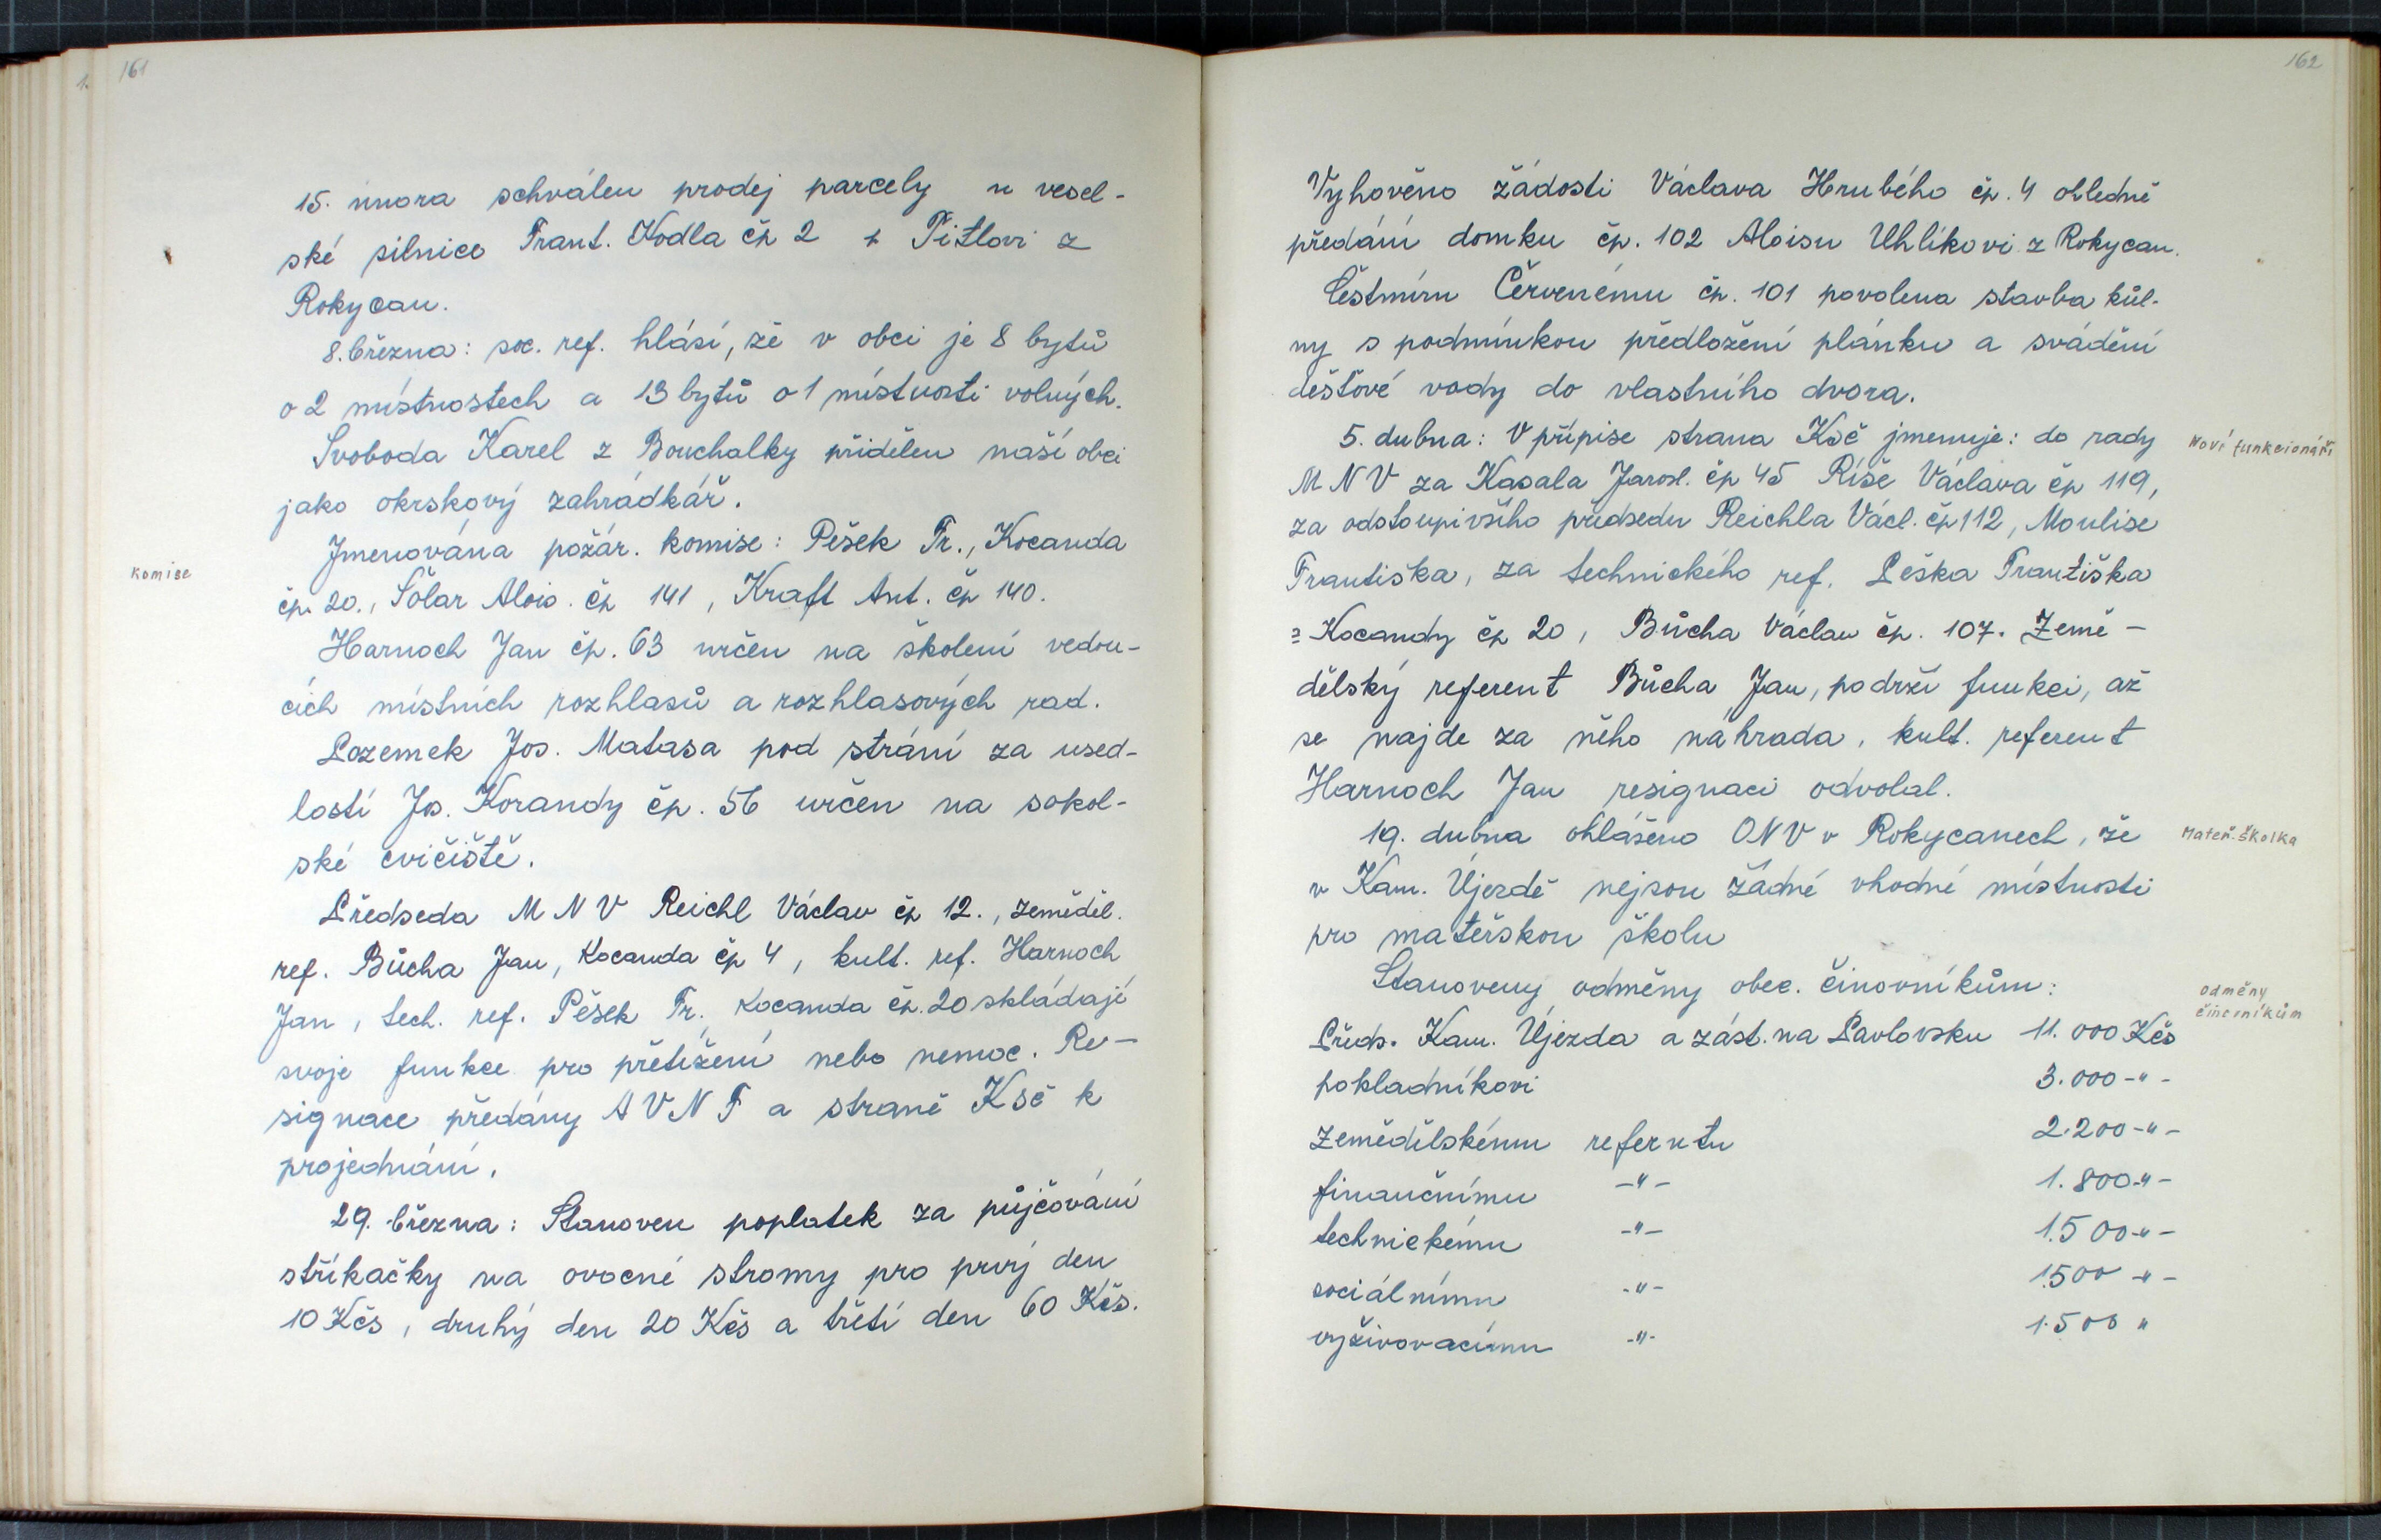 161
15. února schválen prodej parcely u vesel-
ské silnice Frant. Kodla čp 2 Titlovi z
Rokycan.
8. března: soc. ref. hlásí, že v obci je 8 bytů
o 2 místnostech a 13 bytů o 1 místnosti volných.
Svoboda Karel z Bouchalky přidělen naší obci
jako okrskový zahrádkář.
Jmenována požár. komise: Pešek Fr., Kocanda
komise
čp. 20., Šolar Alois. čp 141, Kraft Ant. čp 140.
Harnoch Jan čp. 63 určen na školení vedou-
cích místních rozhlasů a rozhlasových rad.
Pozemek Jos. Matasa pod strání za used-
lostí Jos. Korandy čp. 56 určen na sokol-
ské cvičiště.
Předseda MNV Reichl Václav čp 12., zeměděl.
ref. Bůcha Jan, Kocanda čp 4, kult. ref. Harnoch
Jan, tech. ref. Pěšek Fr. Kocanda čp. 20 skládají
svoje funkce pro přetížení nebo nemoc. Re-
signace předány AVNF a straně KSČ k
projednání.
29. března: Stanoven poplatek za půjčování
stříkačky na ovocné stromy pro prvý den
10 Kčs, druhý den 20 Kčs a třetí den 60 Kčs.
162
Vyhověno žádosti Václava Hrubého čp. 4 ohledně
předání domku čp. 102 Aloisu Uhlíkovi z Rokycan.
Čestmíru Červenému čp. 101 povolena stavba kůl-
ny s podmínkou předložení plánku a svádění
dešťové vody do vlastního dvora.
5. dubna: V přípise strana Ksč jmenuje: do rady
Noví funkcionáři
MNV za Kasala Jarosl. čp 45 Ríše Václava čp 119,
za odstoupivšího předsedu Reichla Václ. čp 112, Moulise
Františka, za technického ref. Peška Františka
z Kocandy čp 20, Bůcha Václav čp. 107. Země-
dělský referent Bůcha Jan, podrží funkci, až
se najde za něho náhrada, kult. referent
Harnoch Jan resignaci odvolal.
19. dubna ohlášeno ONV v Rokycanech, že
Mateř. školka
v Kam. Újezdě nejsou žádné vhodné místnosti
pro mateřskou školu
Stanoveny odměny obec. činovníkům:
odměny
činovníkům
Předs. Kam. Újezda a zást. na Pavlovsku 11.000 Kčs
pokladníkovi 3.000-"-
zemědělskému referntu 2.200-"-
finančnímu -"- 1.800-"-
technickému -"- 1.500-"-
sociálnímu -"- 1.500-"-
vyživovacímu -"- 1.500 "